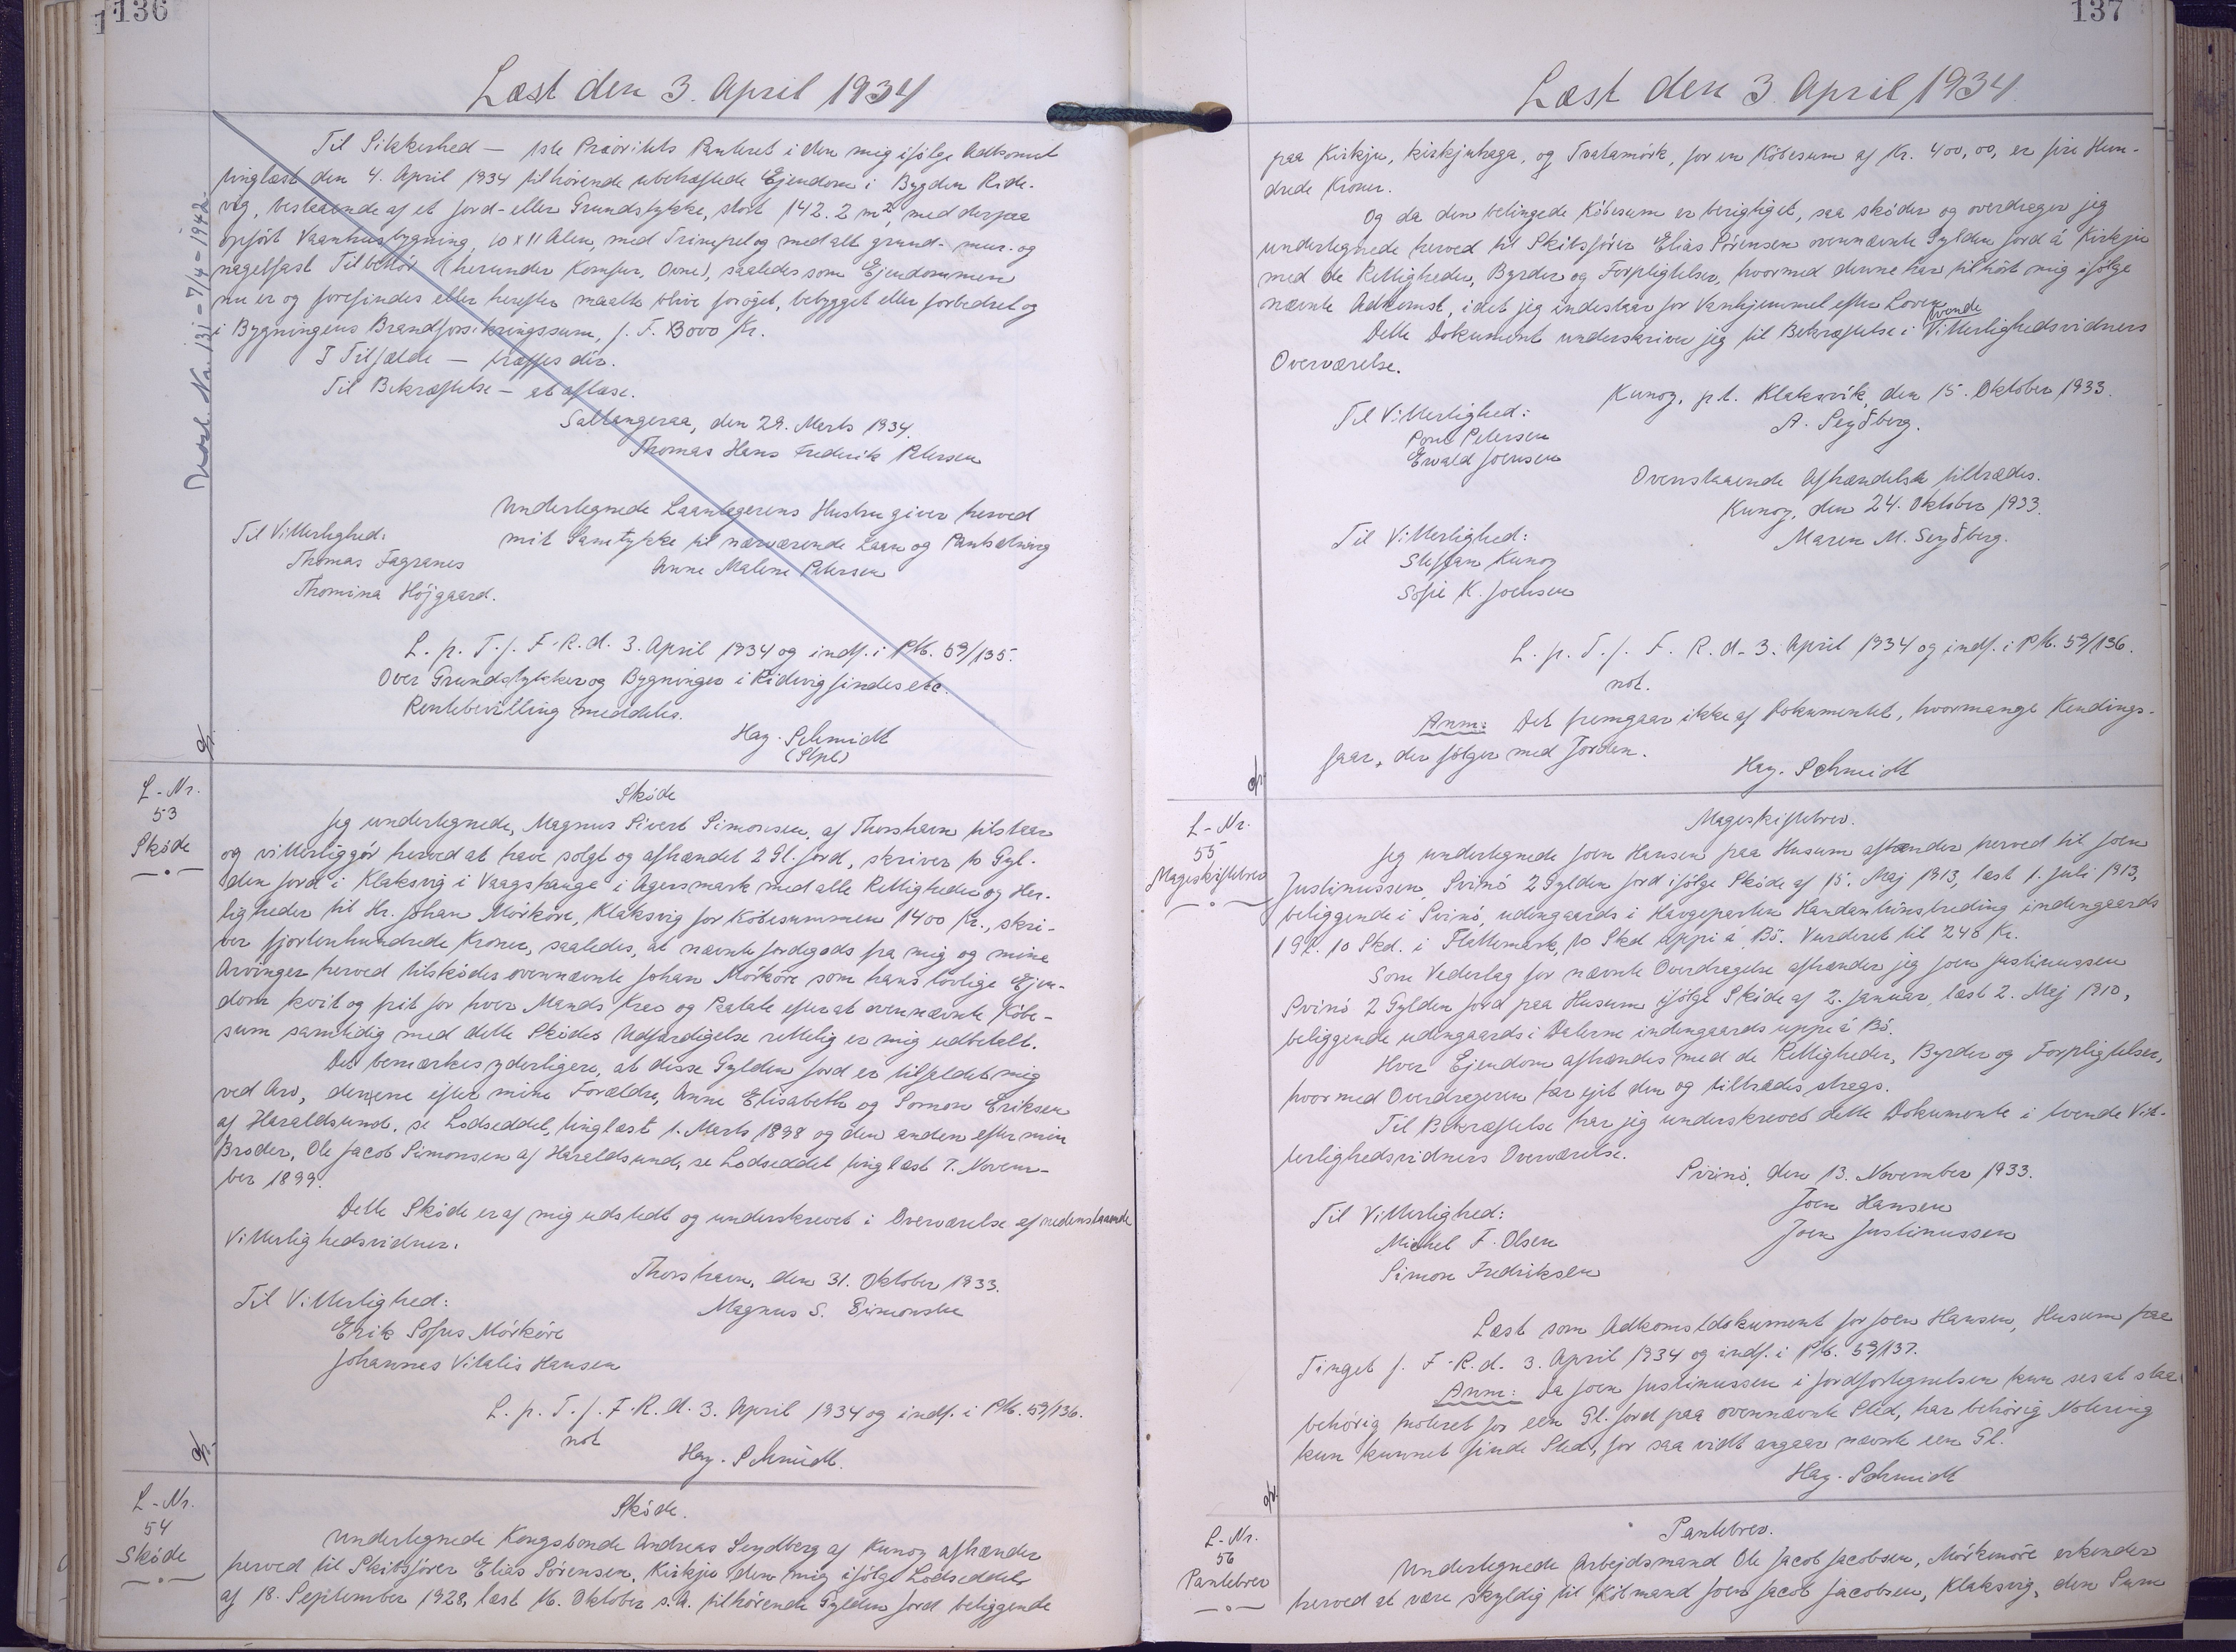 136
Læst den 3. April 1934
Udsl. No. 131 - 7/4 - 1942
Til Sikkerhed — 1ste Prioritets Panteret i den mig ifølge Adkomst
tinglæst den 4. April 1934 tilhörende ubehæftede Ejendom i Bygden Ride-
vig, bestaaende af et Jord- eller Grundstykke, stort 142.2 m², med derpaa
opført Vaanhusbygning, 10 x 11 Alen, med Trimpel og med alt grund- mur- og
nagelfast Tilbehör (herunder Komfur, Ovne), saaledes som Ejendommen
nu er og forefindes eller herefter maatte blive forøget, bebygget eller forbedret og
i Bygningens Brandforsikringssum, p. T. 8000 Kr.
I Tilfælde — træffes dér.
Til Bekræftelse — at aflæse.
Saltangeraa, den 29. Marts 1934.
Thomas Hans Frederik Petersen
Undertegnede Laantagerens Hustru giver herved
mit Samtykke til nærværende Laan og Pantsætning
Anne Malene Petersen
Til Vitterlighed:
Thomas Fagranes
Thomina Höjgaard.
L. p. T. f. F. R. d. 3. April 1934 og indf. i Pb. 59/135.
Over Grundstykker og Bygninger i Ridevig findes etc.
Rentebevilling meddeles.
Hay. Schmidt
(Stpl)
L-Nr.
53
Sköde
Sköde
Jeg undertegnede, Magnus Sivert Simonsen, af Thorshavn tilstaar
og vitterliggör herved at have solgt og afhændet 2 Gl. Jord, skriver to Gyl-
den Jord i Klaksvig i Vaagshauge i Agersmark med alle Rettigheder og Her-
ligheder til Hr. Johan Mörköre, Klaksvig for Köbesummen 1400 Kr., skri-
ver fjortenhundrede Kroner, saaledes, at nævnte Jordegods fra mig og mine
Arvinger herved tilsködes ovennævnte Johan Mörköre som hans lovlige Ejen-
dom kvit og frit for hver Mands Krav og Paatale efter at ovennævnte Köbe-
sum samtidig med dette Skødes Udfærdigelse rettelig er mig udbetalt.
Det bemærkes yderligere, at disse Gylden Jord er tilfaldet mig
ved Arv, den ene efter mine Forældre, Anne Elisabeth og Somon Eriksen
af Haraldsund, se Lodseddel, tinglæst 1. Marts 1898 og den anden efter min
Broder, Ole Jacob Simonsen af Haraldsund, se Lodseddel tinglæst 7. Novem-
ber 1899.
Dette Sköde er af mig udstedt og underskrevet i Overværelse af nedenstaaende
Vitterlighedsvidner.
Thorshavn, den 31. Oktober 1933.
Magnus S. Simonsen
Til Vitterlighed:
Erik Sofus Mörköre
Johannes Vitalis Hansen
L. p. T. f. F. R. d. 3. April 1934 og indf. i Pb. 59/136.
not
Hay. Schmidt.
L-Nr.
54
Sköde
Sköde.
Undertegnede Kongsbonde Andreas Seydberg af Kunoy afhænder
herved til Skibsfører Elias Sørensen, Kirkju den mig ifølge Lodseddel
af 18. September 1928, læst 16. Oktober s. A. tilhörende Gylden Jord beliggende
137
Læst den 3. April 1934.
paa Kirkju, Kirkjuhaga, og Tvatamörk, for en Köbesum af Kr. 400,00, er fire Hun-
drede Kroner.
Og da den betingede Köbesum er berigtiget, saa sköder og overdrager jeg
undertegnede herved til Skibsfører Elias Sørensen ovennævnte Gylden Jord á Kirkju
med de Rettigheder, Byrder og Forpligtelser, hvormed denne har tilhört mig ifölge
nævnte Adkomst, idet jeg indestaar for Vanhjemmel efter Loven.
Dette Dokument underskriver jeg til Bekræftelse i tvende Vitterlighedsvidners
Overværelse.
Kunoy, p.t. Klaksvík, den 15. Oktober 1933.
A. Seyðberg.
Til Vitterlighed:
Poul Petersen
Ewald Joensen
Ovenstaaende Afhændelse tiltrædes.
Kunoy, den 24. Oktober 1933.
Maren M. Seyðberg.
Til Vitterlighed:
Steffan Kunoy
Sofie K. Joensen
L. p. T. f. F. R. d. 3. April 1934 og indf. i Pb. 59/136.
not.
Anm: Det fremgaar ikke af Dokumentet, hvormange Kendings-
faar, der følger med Jorden.
Hay. Schmidt
L-Nr.
55
Mageskiftebrev
Mageskiftebrev.
Jeg undertegnede Joen Hansen paa Husum afhænder herved til Joen
Justinussen, Svinö 2 Gylden Jord ifölge Sköde af 15. Maj 1913, læst 1. Juli 1913,
beliggende i Svinö, udengaards i Havgeparten Handantúnstreding indengaards
1 Gl. 10 Skd. i Flattemark, 10 Skd uppi á Bö. Vurderet til 240 Kr.
Som Vederlag for nævnte Overdragelse afhænder jeg Joen Justinussen
Svinö 2 Gylden Jord paa Husum ifölge Sköde af 2. Januar, læst 2. Maj 1910,
beliggende udengaards i Dalerne indengaards uppi á Bö.
Hver Ejendom afhændes med de Rettigheder, Byrder og Forpligtelser,
hvormed Overdrageren har ejet den og tiltrædes strags.
Til Bekræftelse har jeg underskrevet dette Dokumente i tvende Vit-
terlighedsvidners Overværelse.
Svinö, den 13. November 1933.
Joen Hansen
Joen Justinussen
Til Vitterlighed:
Michel F. Olsen
Simon Fredriksen
Læst som Adkomstdokument for Joen Hansen, Husum paa
Tinget f. F. R. d. 3. April 1934 og indf. i Pb. 59/137.
Anm: Da Joen Justinussen i Jordfortegnelsen kun ses at staa
behörig noteret for een Gl. Jord paa ovennævnte Sted, har behörig Notering
kun kunnet finde Sted, for saa vidt angaar nævnte een Gl.
Hay. Schmidt
L-Nr.
56
Pantebrev
Pantebrev.
Undertegnede Arbejdsmand Ole Jacob Jacobsen, Mörkeröre erkender
herved at være skyldig til Köbmand Joen Jacob Jacobsen, Klaksvig, den Sum